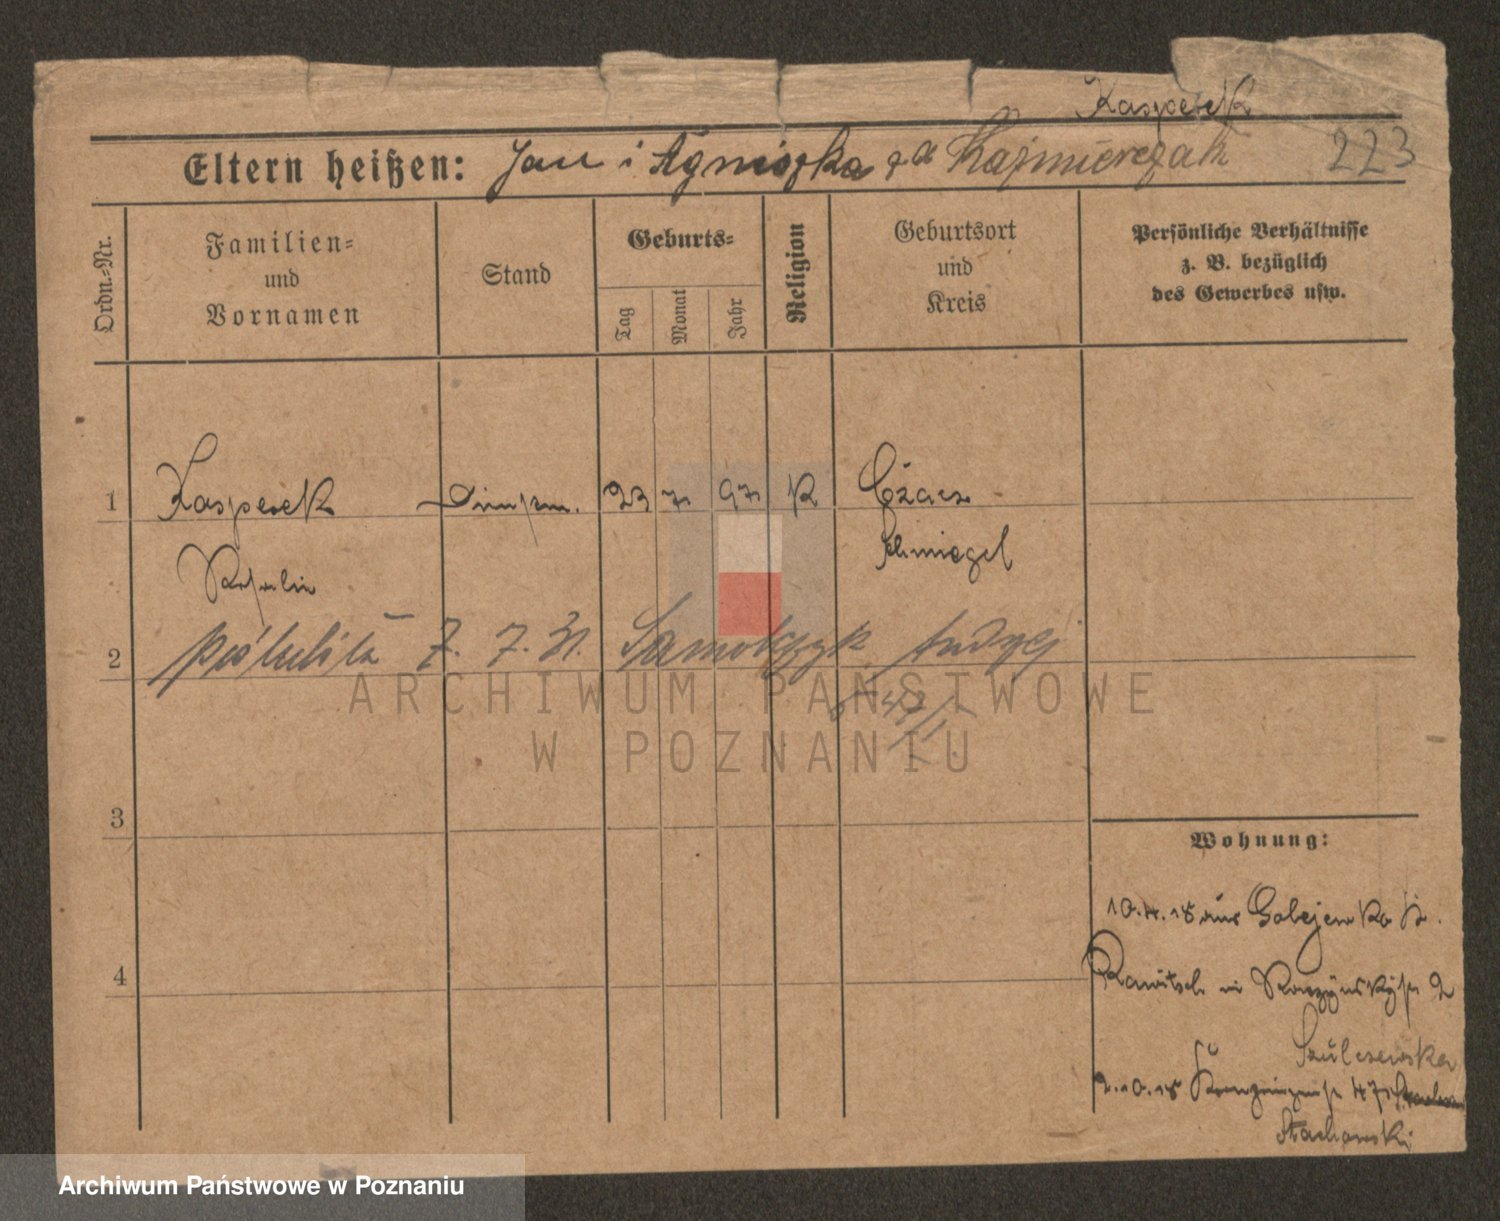 Kasperek
Eltern heißen: Jan i Agnieszka z d Kaźmierczak 223
Ordn.-Nr.
Familien-
und
Vornamen
Stand
Geburts-
Tag
Monat
Jahr
Religion
Geburtsort
und
Kreis
Persönliche Verhältnisse
z. B. bezüglich
des Gewerbes usw.
1 Kasperek 23 7 97 K Czacz
Schmiegel
poślubiła 7. 7. 31. Samolczyk Andrzej
2
3
4
Wohnung:
10.4.18 aus Golejewko Kr.
Rawitsch in 2
Szulczewska
2.10.18 47
Stachowski
ARCHIWUM PAŃSTWOWE
W POZNANIU
Archiwum Państwowe w Poznaniu